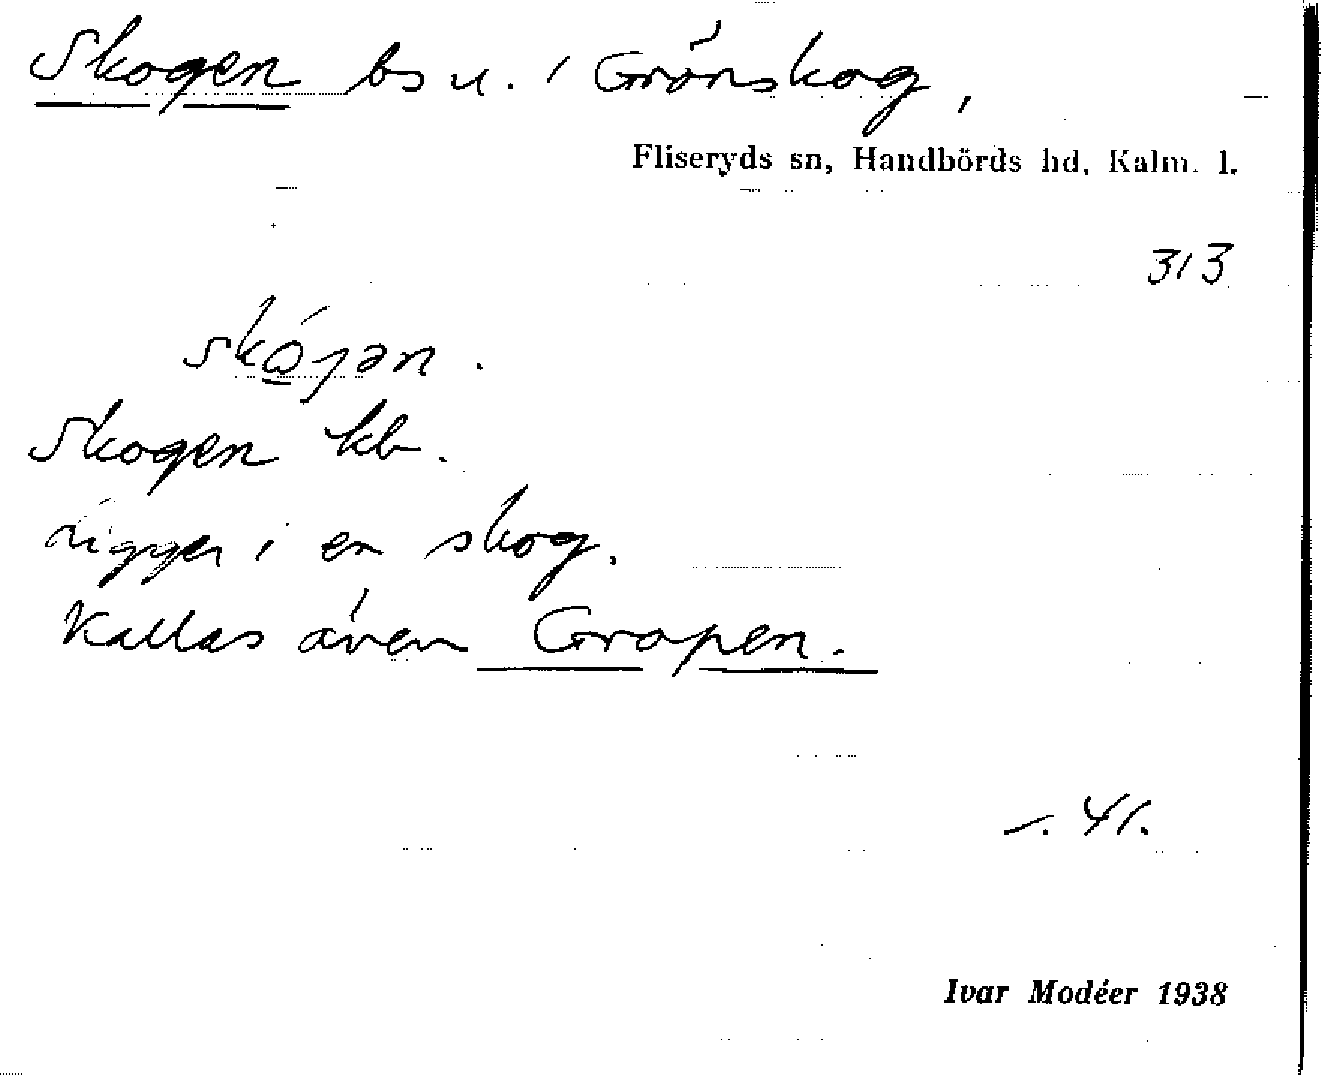 Skogen bs u. i Grönskog,
Fliseryds sn, Handbörds hd, Kalm. l.
313
Skogen kb.
Ligger i en skog.
Kallas även Gropen.
41.
Ivar Modéer 1938